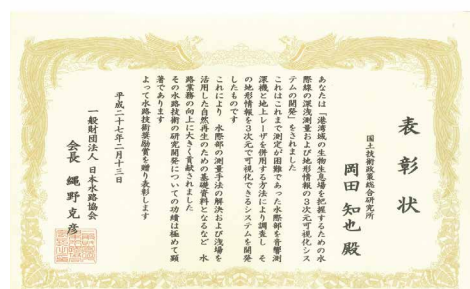 表彰状
国土技術政策総合研究所
岡田 知也 殿
あなたは「港湾域の生物生息場を把握するための水
際線の深浅測量および地形情報の3次元可視化シス
テムの開発」をされました
これはこれまで測定が困難であった水際部を音響測
深機と地上レーザを併用する方法により調査し そ
の地形情報を3次元で可視化できるシステムを開発
したものです
これにより 水際部の測量手法の解決および浅場を
活用した自然再生のための基礎資料となるなど 水
路業務の向上に大きく貢献されました
その水路技術の研究開発についての功績は極めて顕
著であります
よって水路技術奨励賞を贈り表彰します
平成二十七年二月十三日
一般財団法人 日本水路協会
会長 縄野克彦